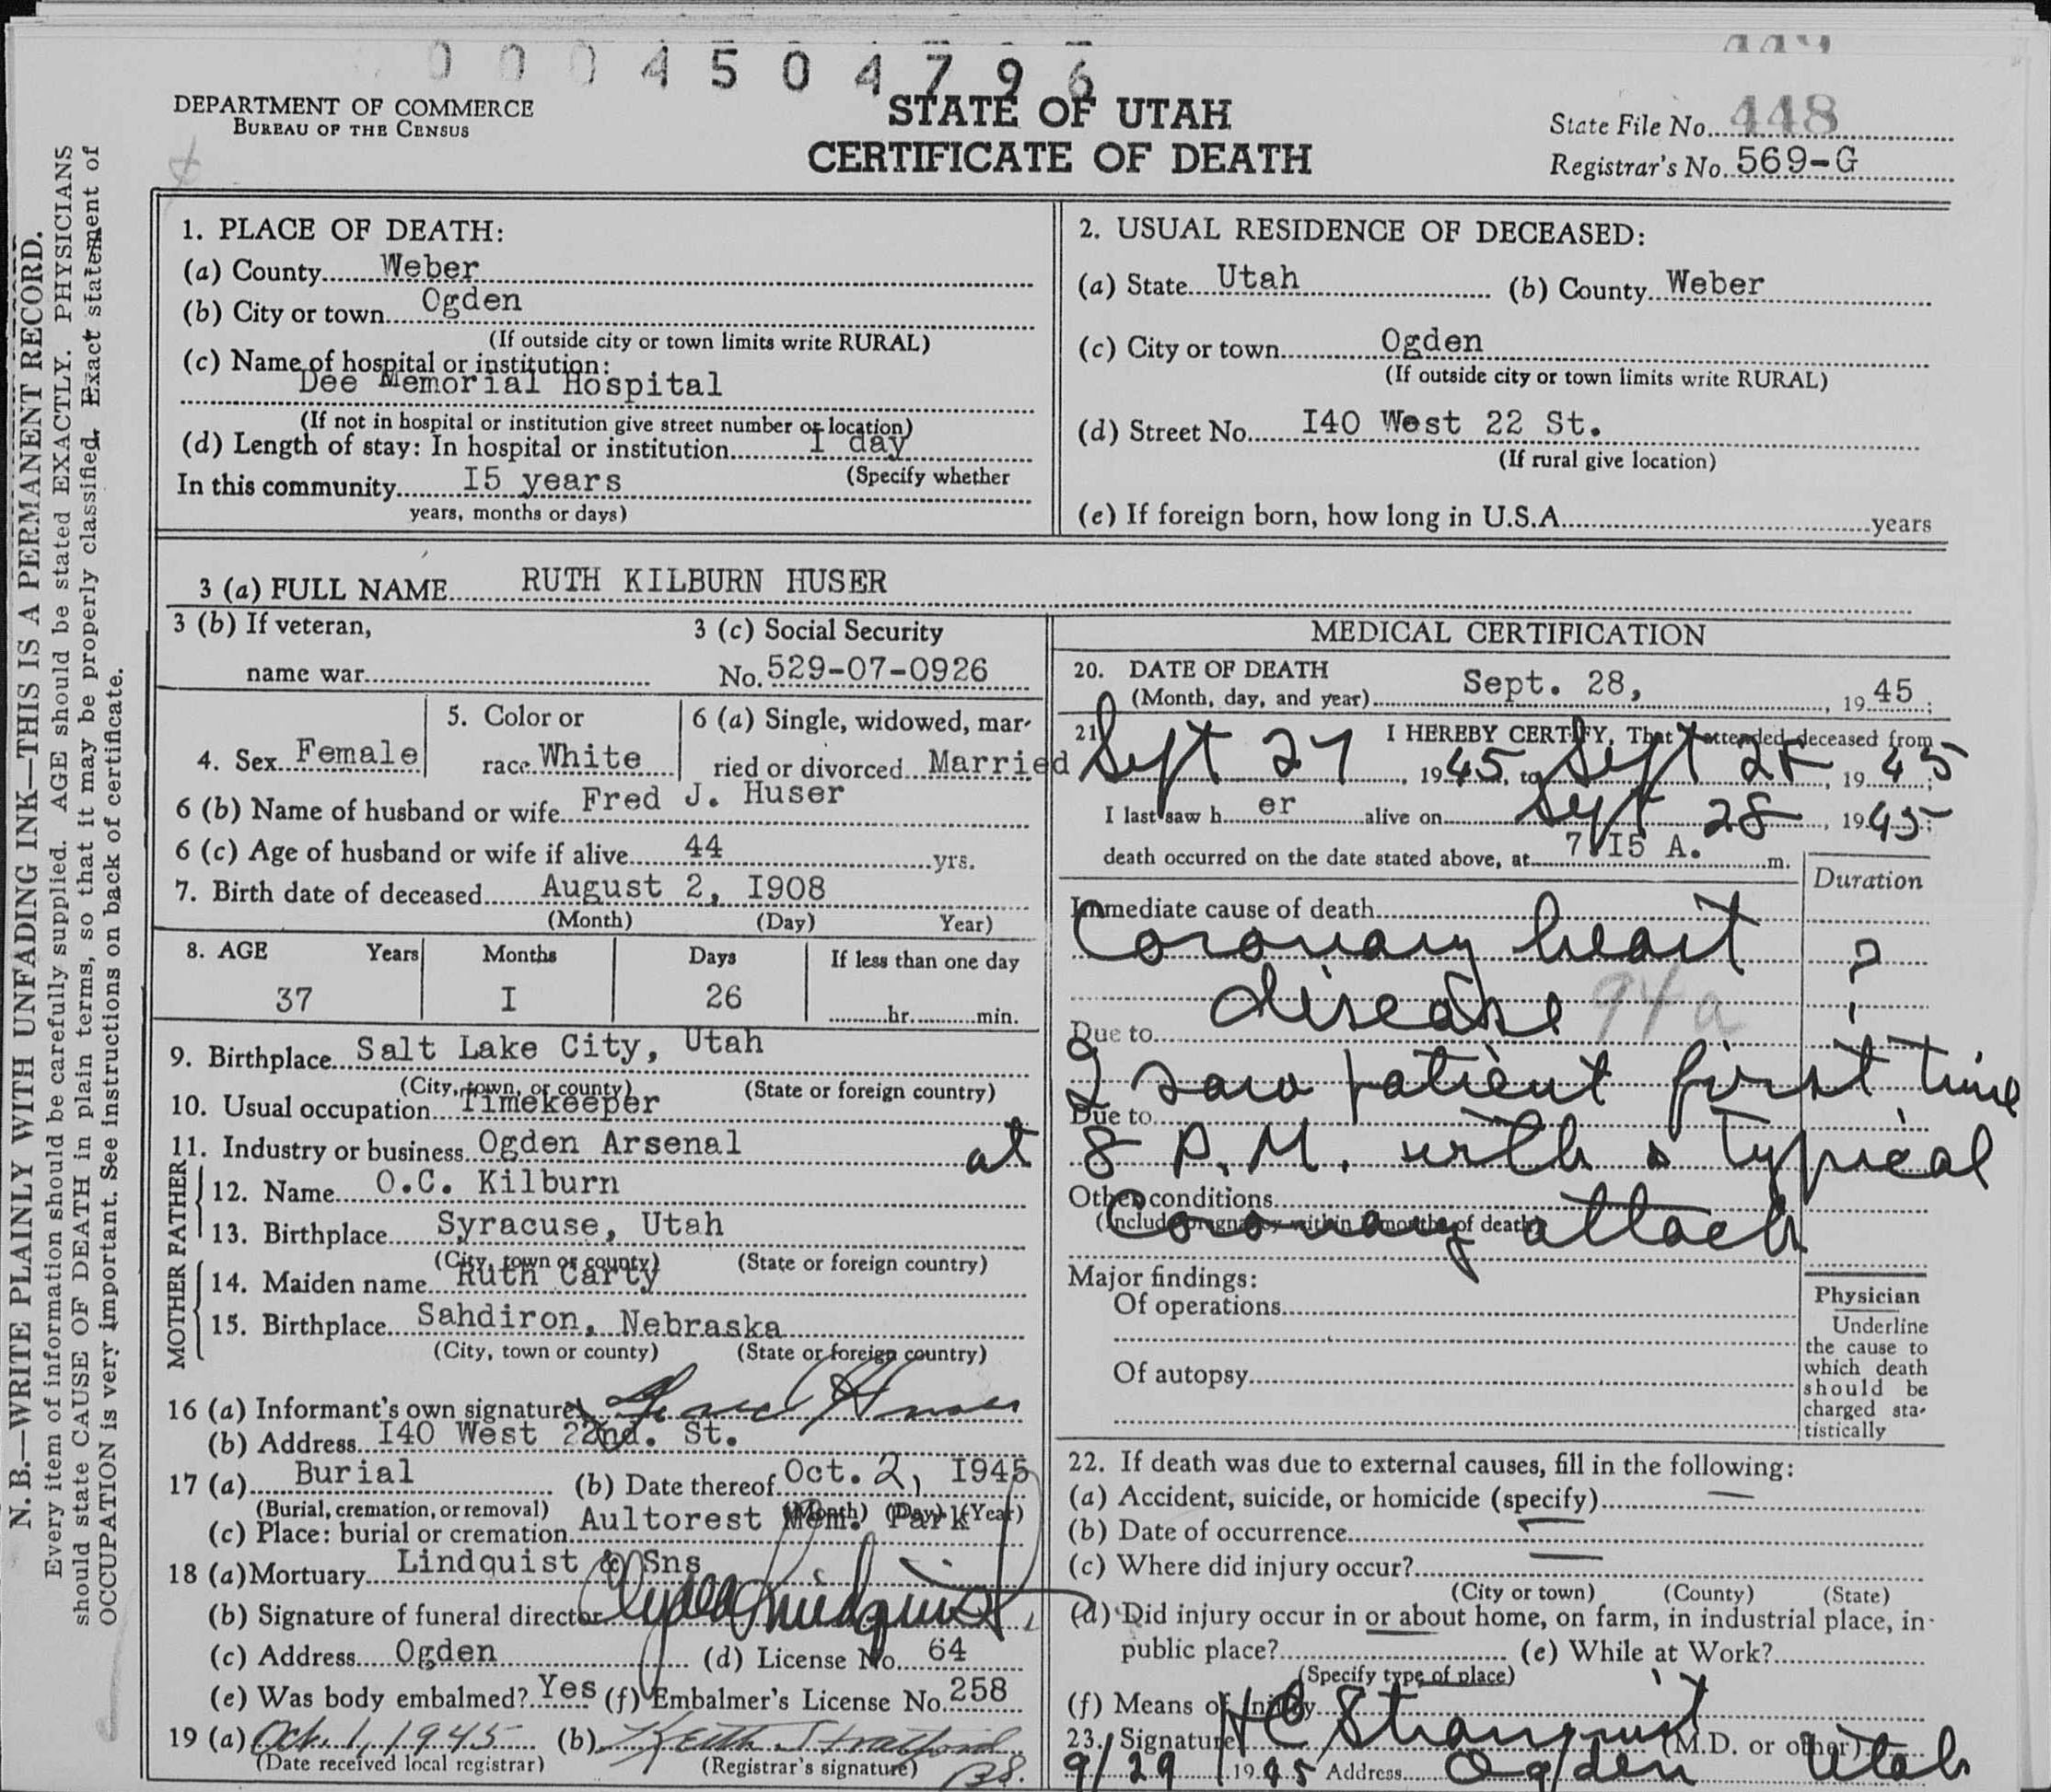 0 0 0 4 5 0 4 7 9 6
DEPARTMENT OF COMMERCE
BUREAU OF THE CENSUS
STATE OF UTAH
CERTIFICATE OF DEATH
State File No. 448
Registrar's No. 569-G
N. B.—WRITE PLAINLY WITH UNFADING INK—THIS IS A PERMANENT RECORD.
Every item of information should be carefully supplied. AGE should be stated EXACTLY. PHYSICIANS
should state CAUSE OF DEATH in plain terms, so that it may be properly classified. Exact statement of
OCCUPATION is very important. See instructions on back of certificate.
1. PLACE OF DEATH:
(a) County Weber
(b) City or town Ogden
(If outside city or town limits write RURAL)
(c) Name of hospital or institution:
Dee Memorial Hospital
(If not in hospital or institution give street number or location)
(d) Length of stay: In hospital or institution 1 day
(Specify whether
In this community I5 years
years, months or days)
2. USUAL RESIDENCE OF DECEASED:
(a) State Utah (b) County Weber
(c) City or town Ogden
(If outside city or town limits write RURAL)
(d) Street No. I40 West 22 St.
(If rural give location)
(e) If foreign born, how long in U.S.A. years
3 (a) FULL NAME RUTH KILBURN HUSER
3 (b) If veteran,
name war
3 (c) Social Security
No. 529-07-0926
4. Sex Female
5. Color or
race White
6 (a) Single, widowed, mar-
ried or divorced Married
6 (b) Name of husband or wife Fred J. Huser
6 (c) Age of husband or wife if alive 44 yrs.
7. Birth date of deceased August 2, I908
(Month) (Day) Year)
8. AGE Years Months Days If less than one day
37 I 26 hr. min.
9. Birthplace Salt Lake City, Utah
(City, town, or county) (State or foreign country)
10. Usual occupation Timekeeper
11. Industry or business Ogden Arsenal
FATHER
12. Name O.C. Kilburn
13. Birthplace Syracuse, Utah
(City, town or county) (State or foreign country)
MOTHER
14. Maiden name Ruth Carty
15. Birthplace Sahdiron, Nebraska
(City, town or county) (State or foreign country)
16 (a) Informant's own signature Huser
(b) Address I40 West 22nd. St.
17 (a) Burial (b) Date thereof Oct. 2, I945
(Burial, cremation, or removal) (Month) (Day) (Year)
(c) Place: burial or cremation Aultorest Mem. Park
18 (a) Mortuary Lindquist & Sns
(b) Signature of funeral director Clyde Lindquist
(c) Address Ogden (d) License No. 64
(e) Was body embalmed? Yes (f) Embalmer's License No. 258
19 (a) Oct. 1, 1945 (b) Keith Stratford
(Date received local registrar) (Registrar's signature) BS.
MEDICAL CERTIFICATION
20. DATE OF DEATH
(Month, day, and year) Sept. 28, , 19 45 ;
21. I HEREBY CERTIFY, That I attended deceased from
Sept 27 , 19 45, to Sept 28 , 19 45 ;
I last saw h er alive on Sept 28 , 19 45 ;
death occurred on the date stated above, at 7:I5 A. m.
Duration
Immediate cause of death
Coronary heart ?
disease 94a
Due to
I saw patient first time
Due to
at 8 P.M. with a typical
Other conditions
(Include pregnancy within 3 months of death)
Coronary attack
Major findings:
Of operations
Of autopsy
Physician
Underline
the cause to
which death
should be
charged sta-
tistically
22. If death was due to external causes, fill in the following:
(a) Accident, suicide, or homicide (specify) —
(b) Date of occurrence —
(c) Where did injury occur? —
(City or town) (County) (State)
(d) Did injury occur in or about home, on farm, in industrial place, in
public place? (e) While at Work?
(Specify type of place)
(f) Means of injury
23. Signature H C Stranquist (M.D. or other)
9/29 1945 Address Ogden Utah